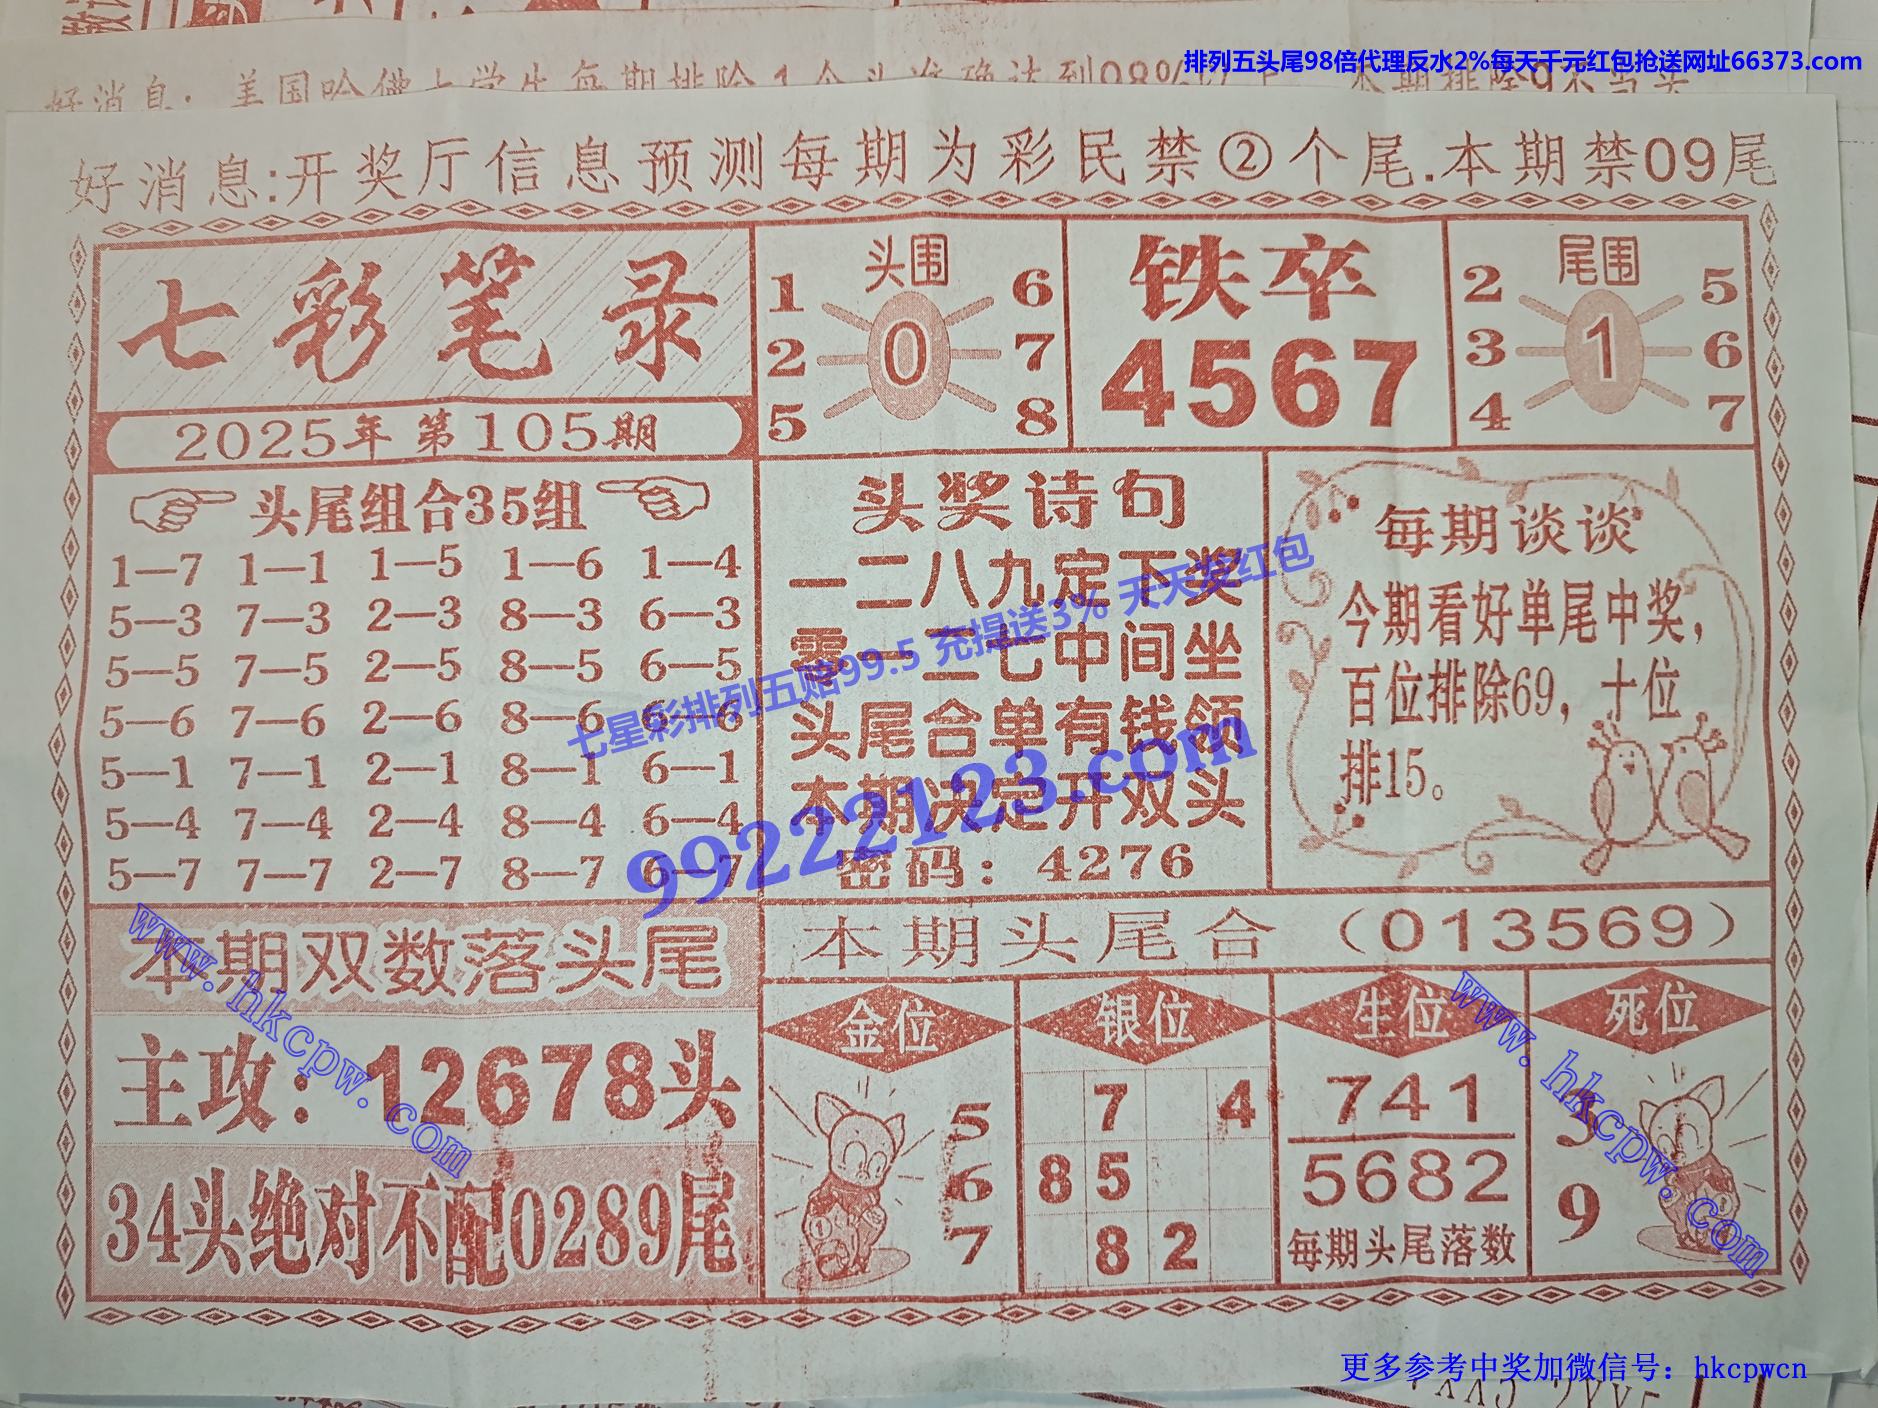 排列五头尾98倍代理反水2%每天千元红包抢送网址66373.com
好消息：美国哈佛大学生每期排除1个头准确达到98%以上 本期排除9不当头
好消息:开奖厅信息预测每期为彩民禁②个尾.本期禁09尾
七彩笔录
2025年第105期
头围
1 6
2 0 7
5 8
铁卒
4567
尾围
2 5
3 1 6
4 7
头尾组合35组
1—7 1—1 1—5 1—6 1—4
5—3 7—3 2—3 8—3 6—3
5—5 7—5 2—5 8—5 6—5
5—6 7—6 2—6 8—6 6—6
5—1 7—1 2—1 8—1 6—1
5—4 7—4 2—4 8—4 6—4
5—7 7—7 2—7 8—7 6—7
头奖诗句
一二八九定下奖
零一二七中间坐
头尾合单有钱领
本期决定开双头
密码：4276
每期谈谈
今期看好单尾中奖，
百位排除69，十位
排15。
七星彩排列五赔99.5 充提送3% 天天发红包
99222123.com
本期双数落头尾
主攻：12678头
34头绝对不配0289尾
本期头尾合（013569）
金位
5
6
7
银位
7 4
8 5
8 2
生位
741
5682
每期头尾落数
死位
3
9
www.hkcpw.com
www.hkcpw.com
更多参考中奖加微信号：hkcpwcn